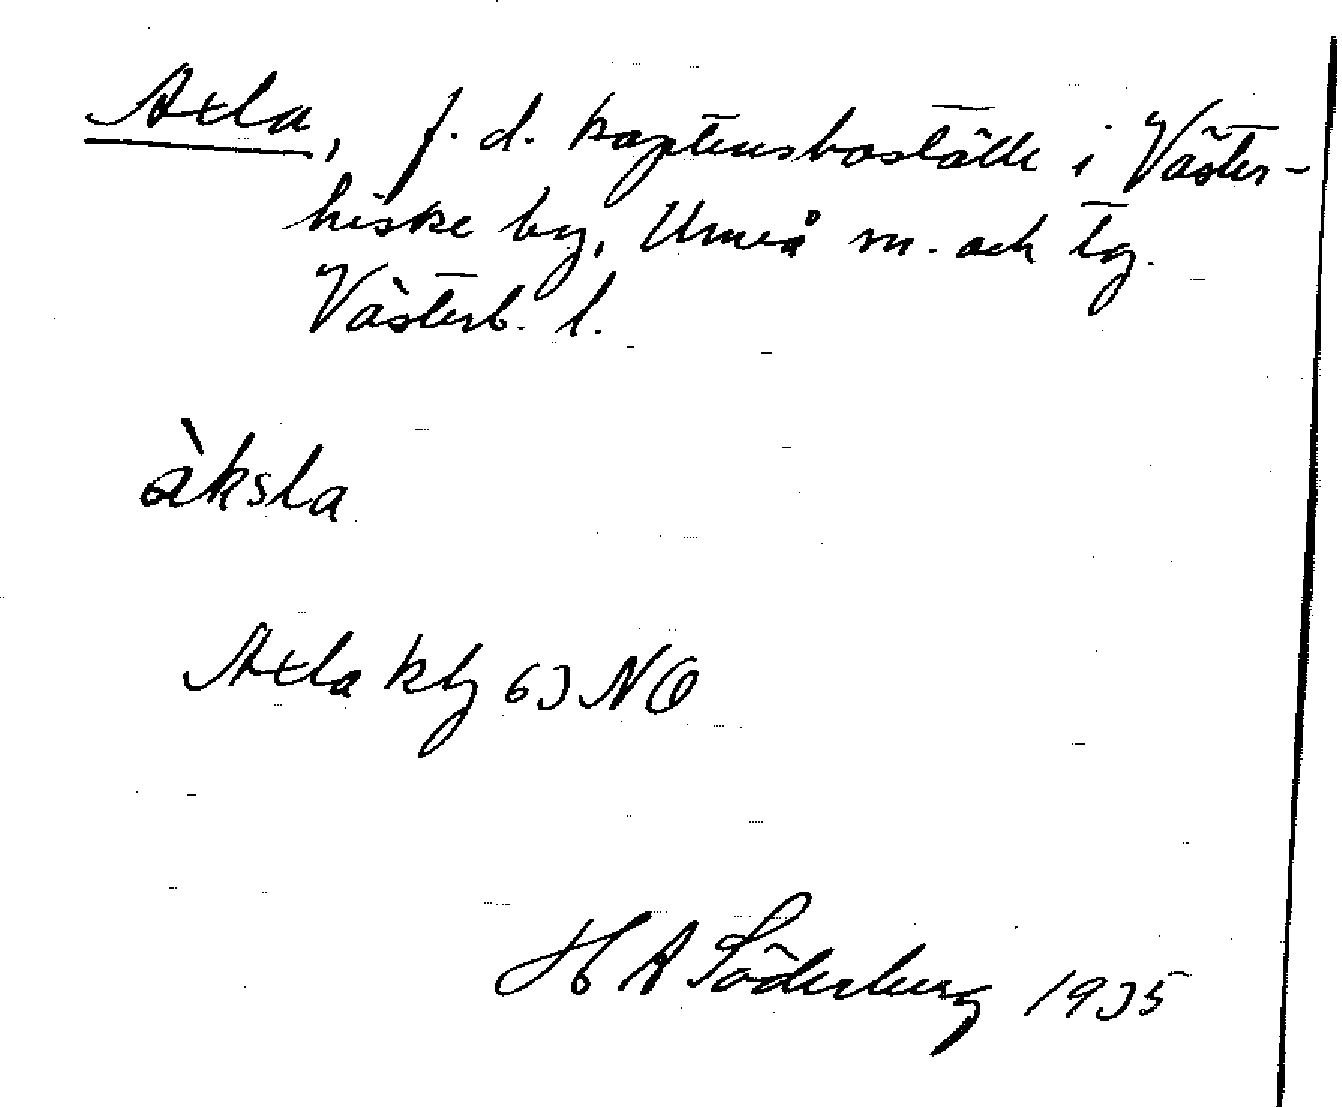 Axla, f. d. kaptensboställe i Väster-
hiske by, Umeå m. och tg.
Västerb. l.
àksla
Axla kbl 63 NO
H A Söderberg 1935